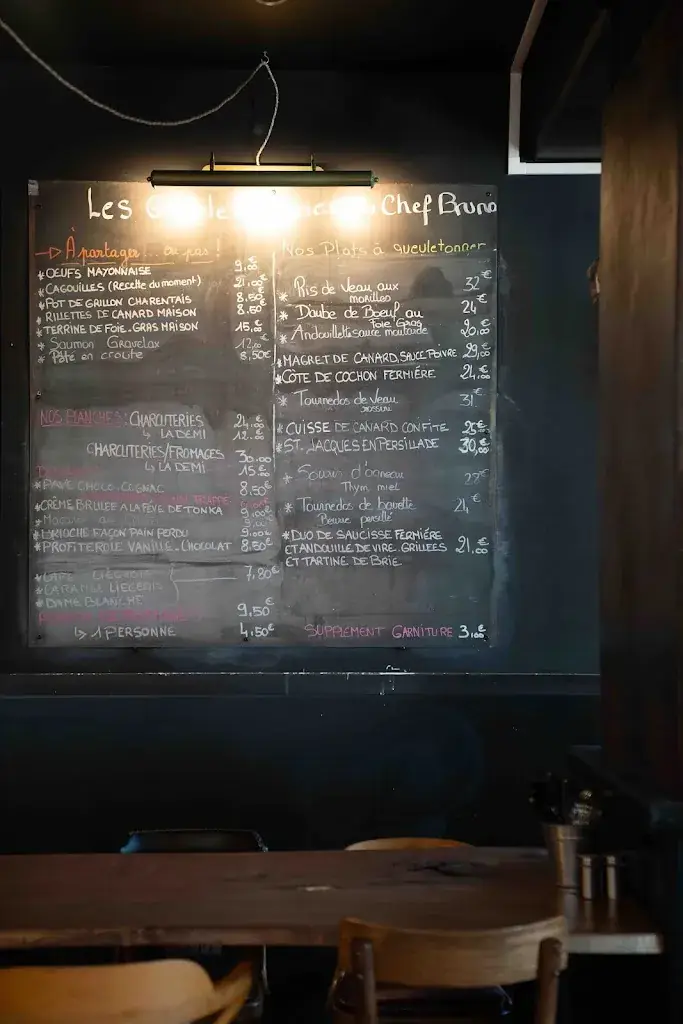 Les Chef Bruno
À partager... ou pas !
* OEUFS MAYONNAISE
* CAGOUILLES (Recette du moment)
* POT DE GRILLON CHARENTAIS 8.50€
* RILLETTES DE CANARD MAISON 8.50€
* TERRINE DE FOIE.GRAS MAISON 15,00€
* Saumon Gravelax 12,00€
* Pâté en croûte 8,50€
NOS PLANCHES: CHARCUTERIES 24,00€
↳ LA DEMI 12.00€
CHARCUTERIES/FROMAGES 30.00€
↳ LA DEMI 15€
* PAVÉ CHOCO.COGNAC 8.50€
* CRÈME BRULÉE A LA FÈVE DE TONKA 9,00€
* BRIOCHE FAÇON PAIN PERDU 9,00€
* PROFITEROLE VANILLE.CHOCOLAT 8.50€
* CAFÉ LIÉGEOIS 7,80€
* LIEGEOIS
* DAME BLANCHE
9,50€
↳ 1 PERSONNE 4,50€
Nos Plats à gueuletonner
* Ris de Veau aux morilles 32€
* Daube de Boeuf au Foie Gras 24€
* Andouillette sauce moutarde 20,00€
* MAGRET DE CANARD, SAUCE POIVRE 29,00€
* CÔTE DE COCHON FERMIÈRE 24,00€
* Tournedos de Veau 31€
* CUISSE DE CANARD CONFITE 25€
* ST. JACQUES EN PERSILLADE 30,00€
* Souris d'agneau
Thym miel
* Tournedos de bavette 24€
Beurre persillé
* DUO DE SAUCISSE FERMIÈRE
ET ANDOUILLE DE VIRE GRILLÉES 21,00€
ET TARTINE DE BRIE
SUPPLÉMENT GARNITURE 3,00€